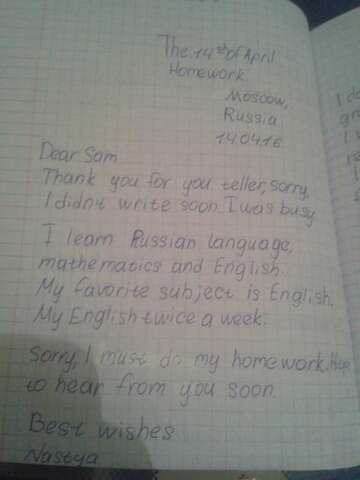 The 14st of April
Homework
Moscow,
Russia
14.04.16
Dear Sam
Thank you for you teller, sorry,
I didnt write soon. I was busy
I learn Russian language,
mathematics and English.
My favorite subject is English.
My English twice a week.
Sorry, I must do my homework. Hope
to hear from you soon.
Best wishes
Nastya